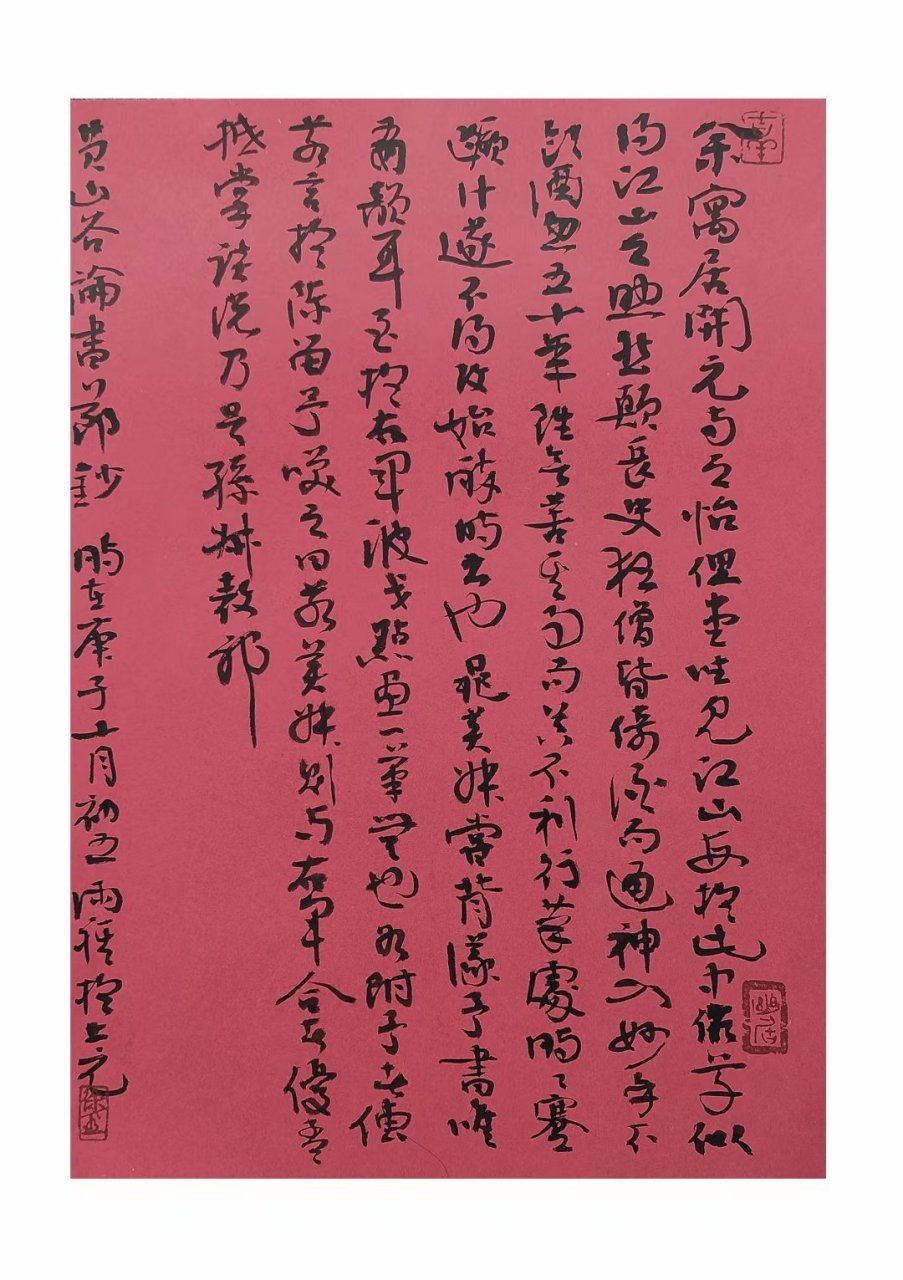 余寓居開元寺之怡偲堂坐見江山每於此中作草似
得江山之助然顛長史狂僧皆倚酒而通神入妙余不
飲酒忽五十年雖善其事而器不利行筆處時〻蹇
蹶計遂不得復如醉時書也晁美叔嘗背議予書唯
有韻耳至於右軍波戈點畫一筆無也有附予者傳
若言於陳留予笑之曰若美叔則與右軍合者優孟
抵掌談說乃是孫叔敖邪
黃山谷論書節鈔 時在庚子十月初五雨於上元